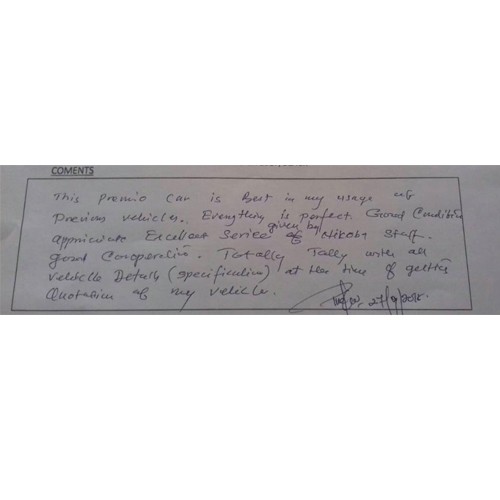 COMENTS
This premio Car is Best in my usage of
Previous vehicles. Everything is perfect Good Condition
given by
appriciate Excellent Service of Nikoba Staff.
good Cooperation. Totally Tally with all
vehiclle Details (specification) at the time of getting
Quotation of my vehicle.